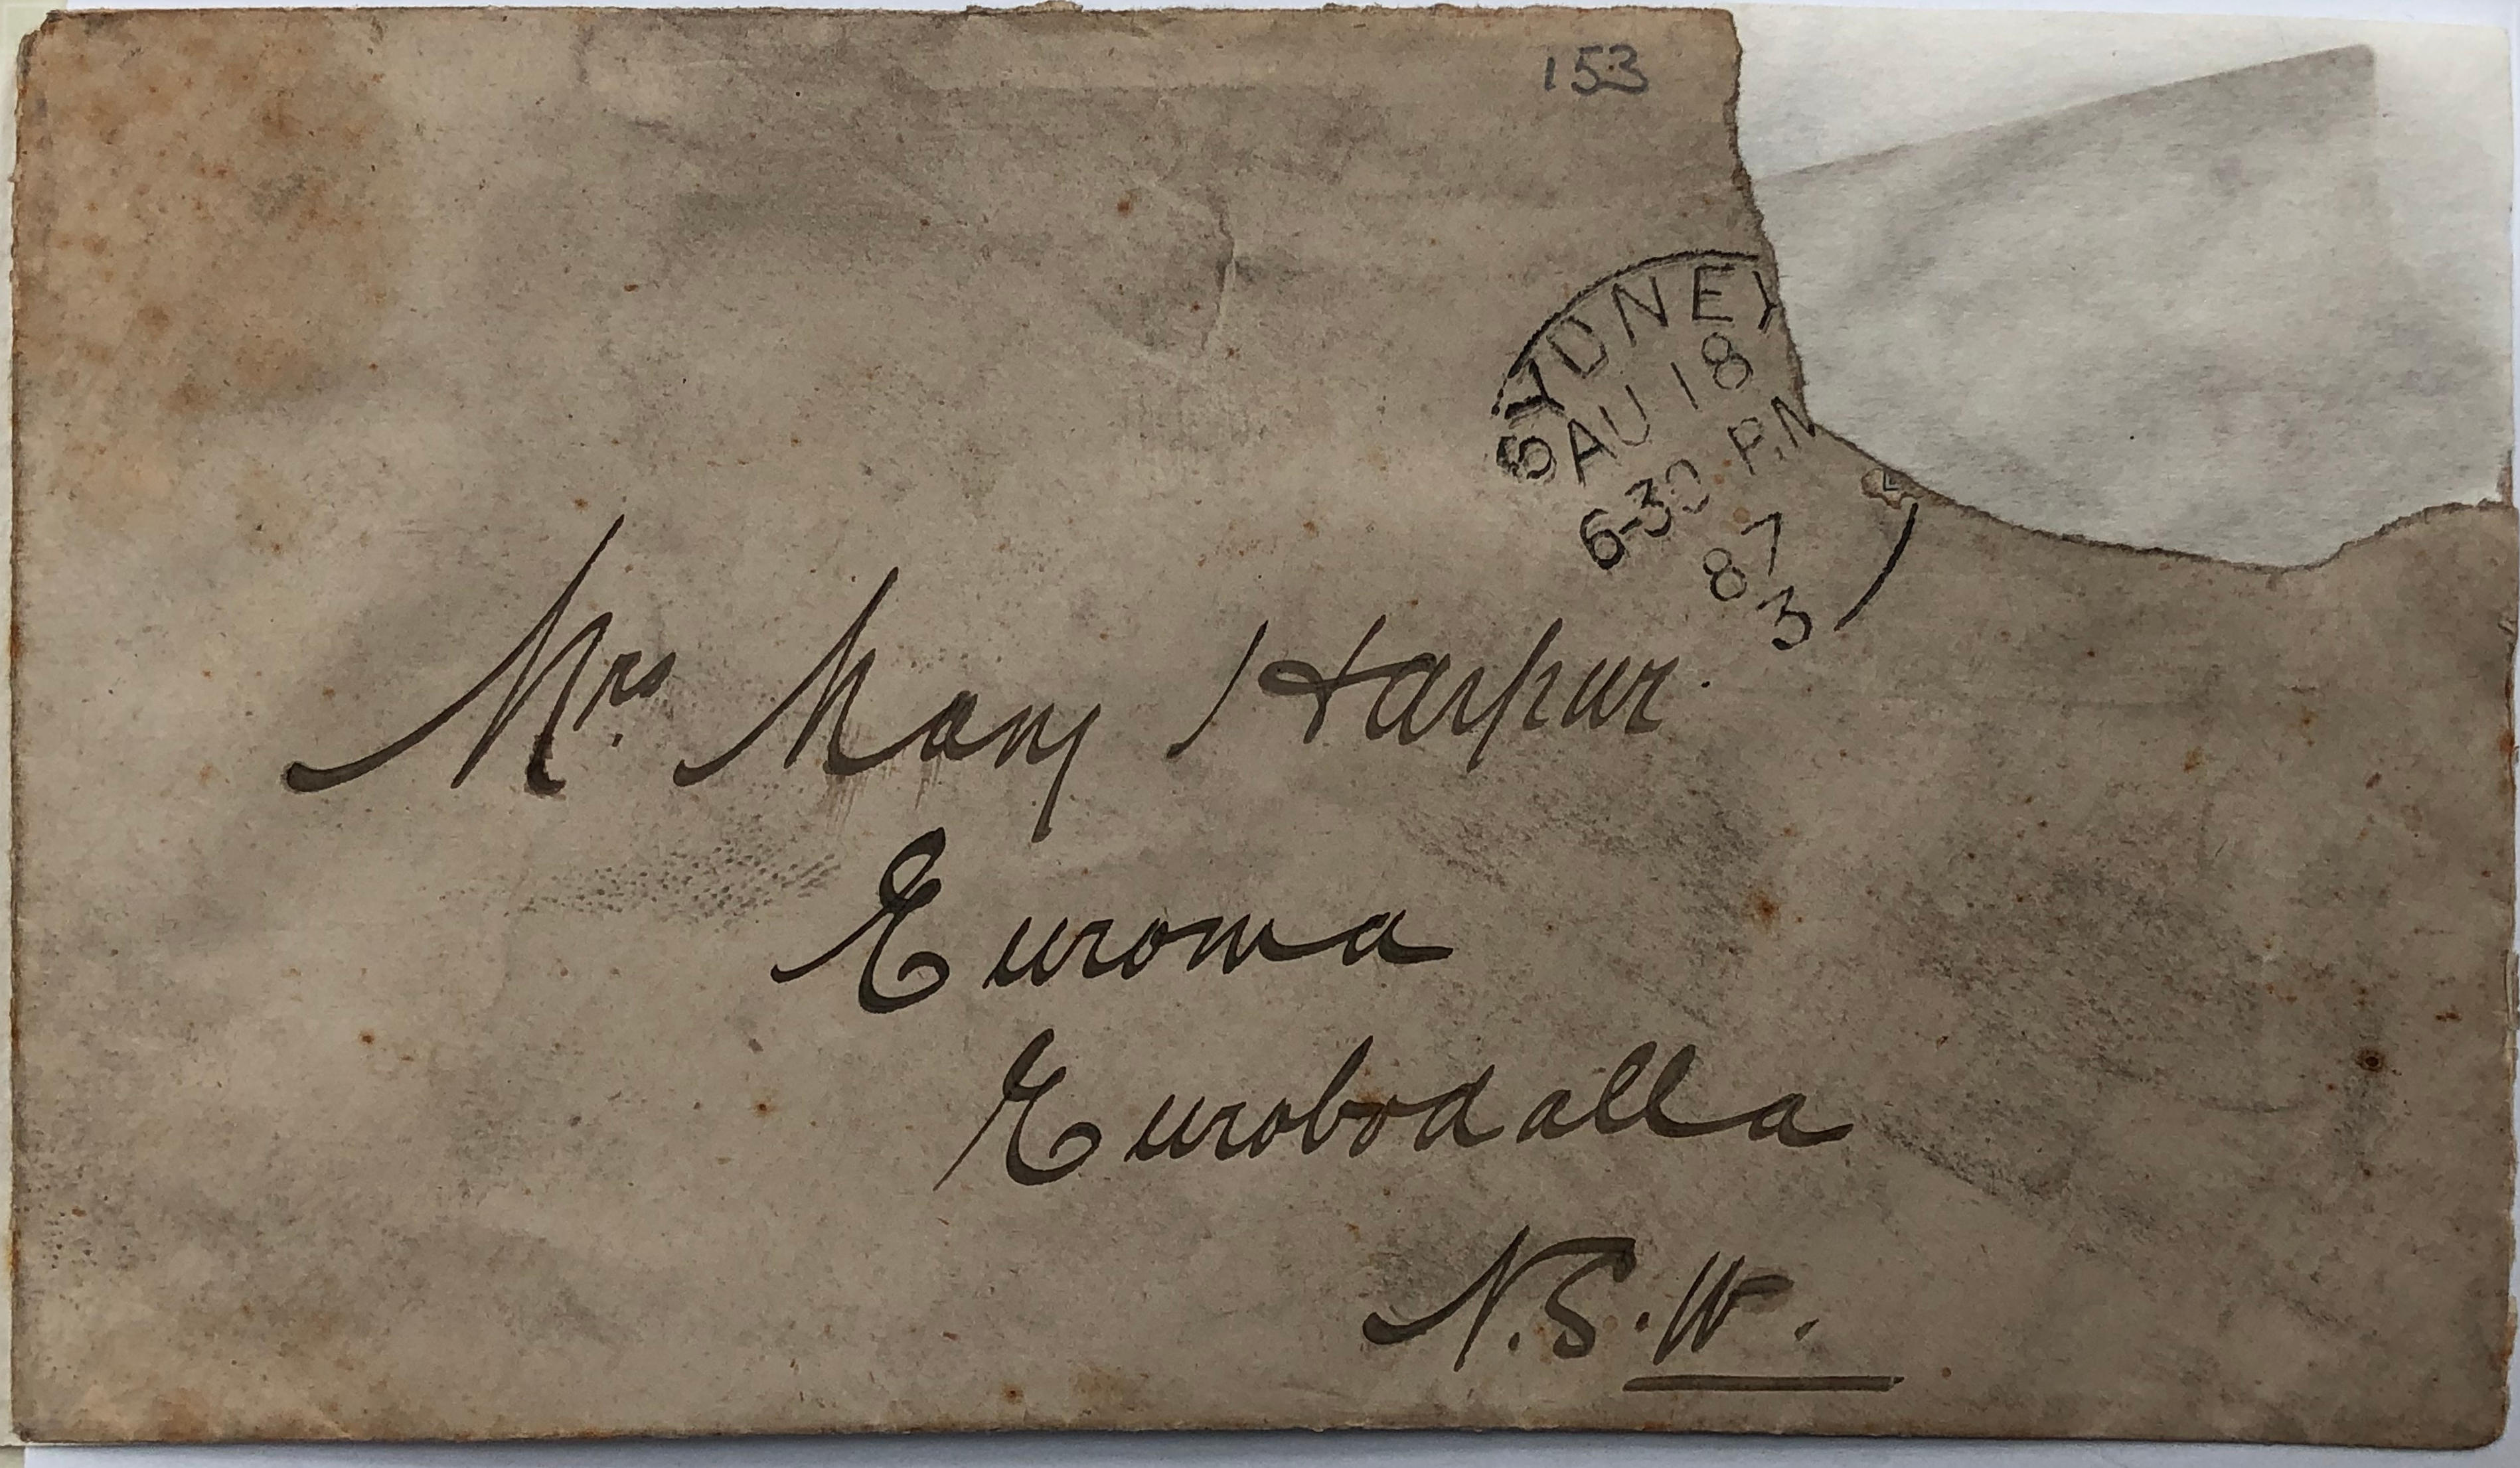 153
SYDNEY
AU 18
6-30 P.M
87
3
Mrs. Mary Harpur.
Euroma
Eurobodalla
N.S.W.